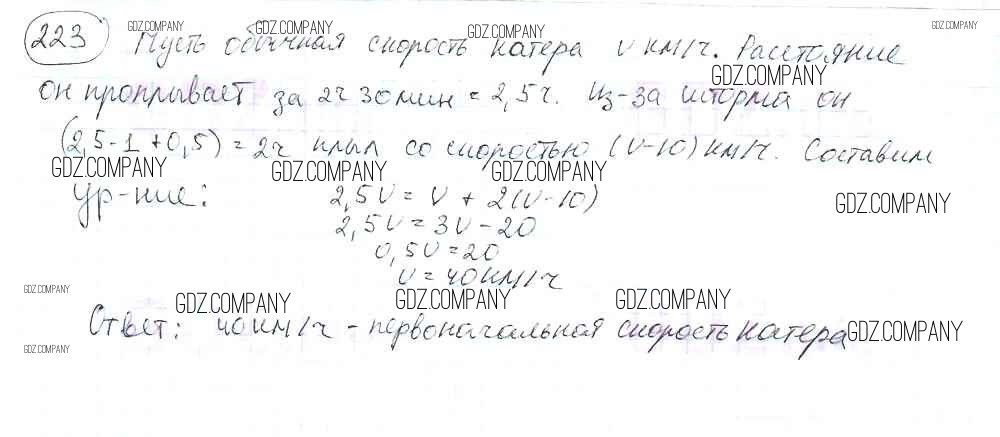 GDZ.COMPANY GDZ.COMPANY GDZ.COMPANY GDZ.COMPANY
223 Пусть обычная скорость катера v км/ч. Расстояние
GDZ.COMPANY
он проплывает за 2ч 30мин = 2,5ч. Из-за шторма он
(2,5-1+0,5) = 2ч плыл со скоростью (v-10) км/ч. Составим
GDZ.COMPANY GDZ.COMPANY GDZ.COMPANY
ур-ние: 2,5v = v + 2(v-10)
GDZ.COMPANY
2,5v = 3v - 20
0,5v = 20
v = 40 км/ч
GDZ.COMPANY
GDZ.COMPANY GDZ.COMPANY GDZ.COMPANY
Ответ: 40 км/ч - первоначальная скорость катера
GDZ.COMPANY
GDZ.COMPANY